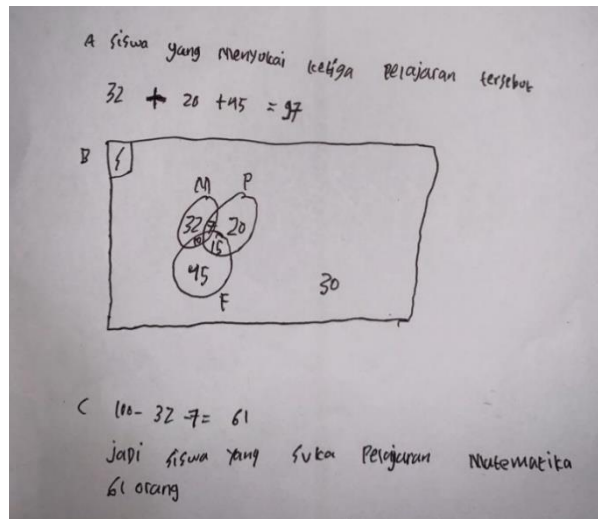 A siswa yang menyukai ketiga pelajaran tersebut
32 + 20 + 45 = 97
B S
M P
32 7 20
10 15
45
30
F
C 100 - 32 - 7 = 61
jadi siswa yang suka pelajaran Matematika
61 orang